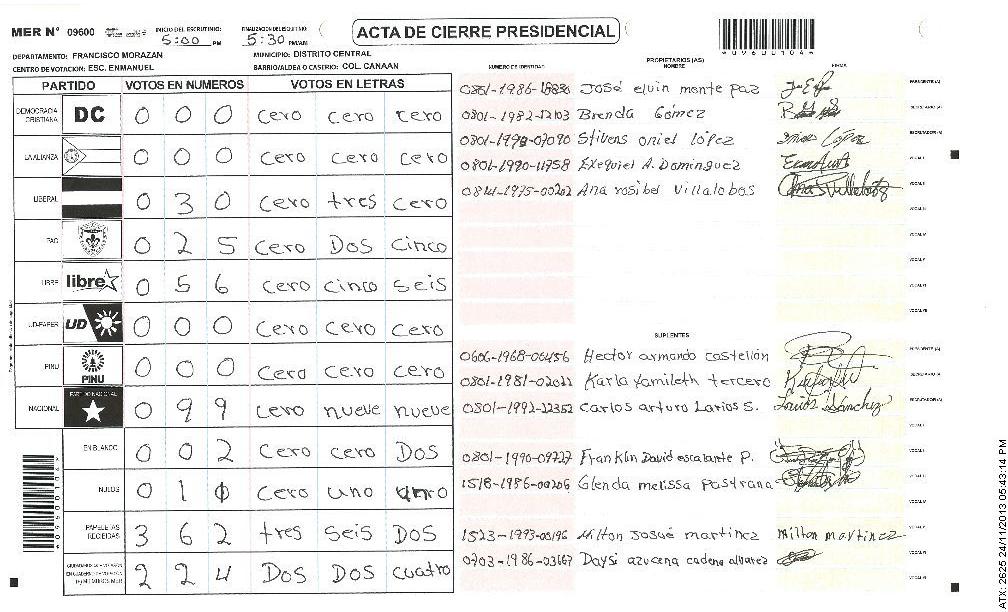 MER N° 09600 INICIO DEL ESCRUTINIO: 5:00 PM FINALIZACION DEL ESCRUTINIO: 5:30 PM/AM
ACTA DE CIERRE PRESIDENCIAL
*09600104*
DEPARTAMENTO: FRANCISCO MORAZAN MUNICIPIO: DISTRITO CENTRAL
CENTRO DE VOTACION: ESC. ENMANUEL BARRIO/ALDEA O CASERIO: COL. CANAAN
PARTIDO VOTOS EN NUMEROS VOTOS EN LETRAS
DEMOCRACIA CRISTIANA DC 0 0 0 cero cero cero
LA ALIANZA 0 0 0 cero cero cero
LIBERAL 0 3 0 cero tres cero
PAC 0 2 5 cero Dos cinco
LIBRE libre 0 5 6 cero cinco seis
UD-FAPER UD 0 0 0 cero cero cero
PINU PINU 0 0 0 cero cero cero
NACIONAL PARTIDO NACIONAL 0 9 9 cero nueve nueve
EN BLANCO 0 0 2 cero cero Dos
NULOS 0 1 0 cero uno
PAPELETAS RECIBIDAS 3 6 2 tres seis Dos
2 2 4 Dos Dos cuatro
PROPIETARIOS (AS)
NUMERO DE IDENTIDAD NOMBRE FIRMA
0801-1986- José elvin monte paz PRESIDENTE (A)
0801-1982-12103 Brenda Gómez SECRETARIO (A)
Stivens oniel lópez ESCRUTADOR (A)
0801-1990-11758 Exequiel A. Dominguez VOCAL I
0814-1975-00202 Ana rosibel Villalobos VOCAL II
SUPLENTES
0606-1968-00456 Hector armando castellón PRESIDENTE (A)
0801-1981-02022 Karla Yamileth tercero SECRETARIO (A)
0801-1992-12352 Carlos arturo Larios S. ESCRUTADOR (A)
0801-1990-09727 Franklin David escalante P.
1518-1986-00206 Glenda melissa Pastrana
1523-1993-00196 Milton Josué martinez milton martinez
0703-1986-03667 Daysi azucena cadena alvarez
ATX: 2625 24/11/2013 05:43:14 PM